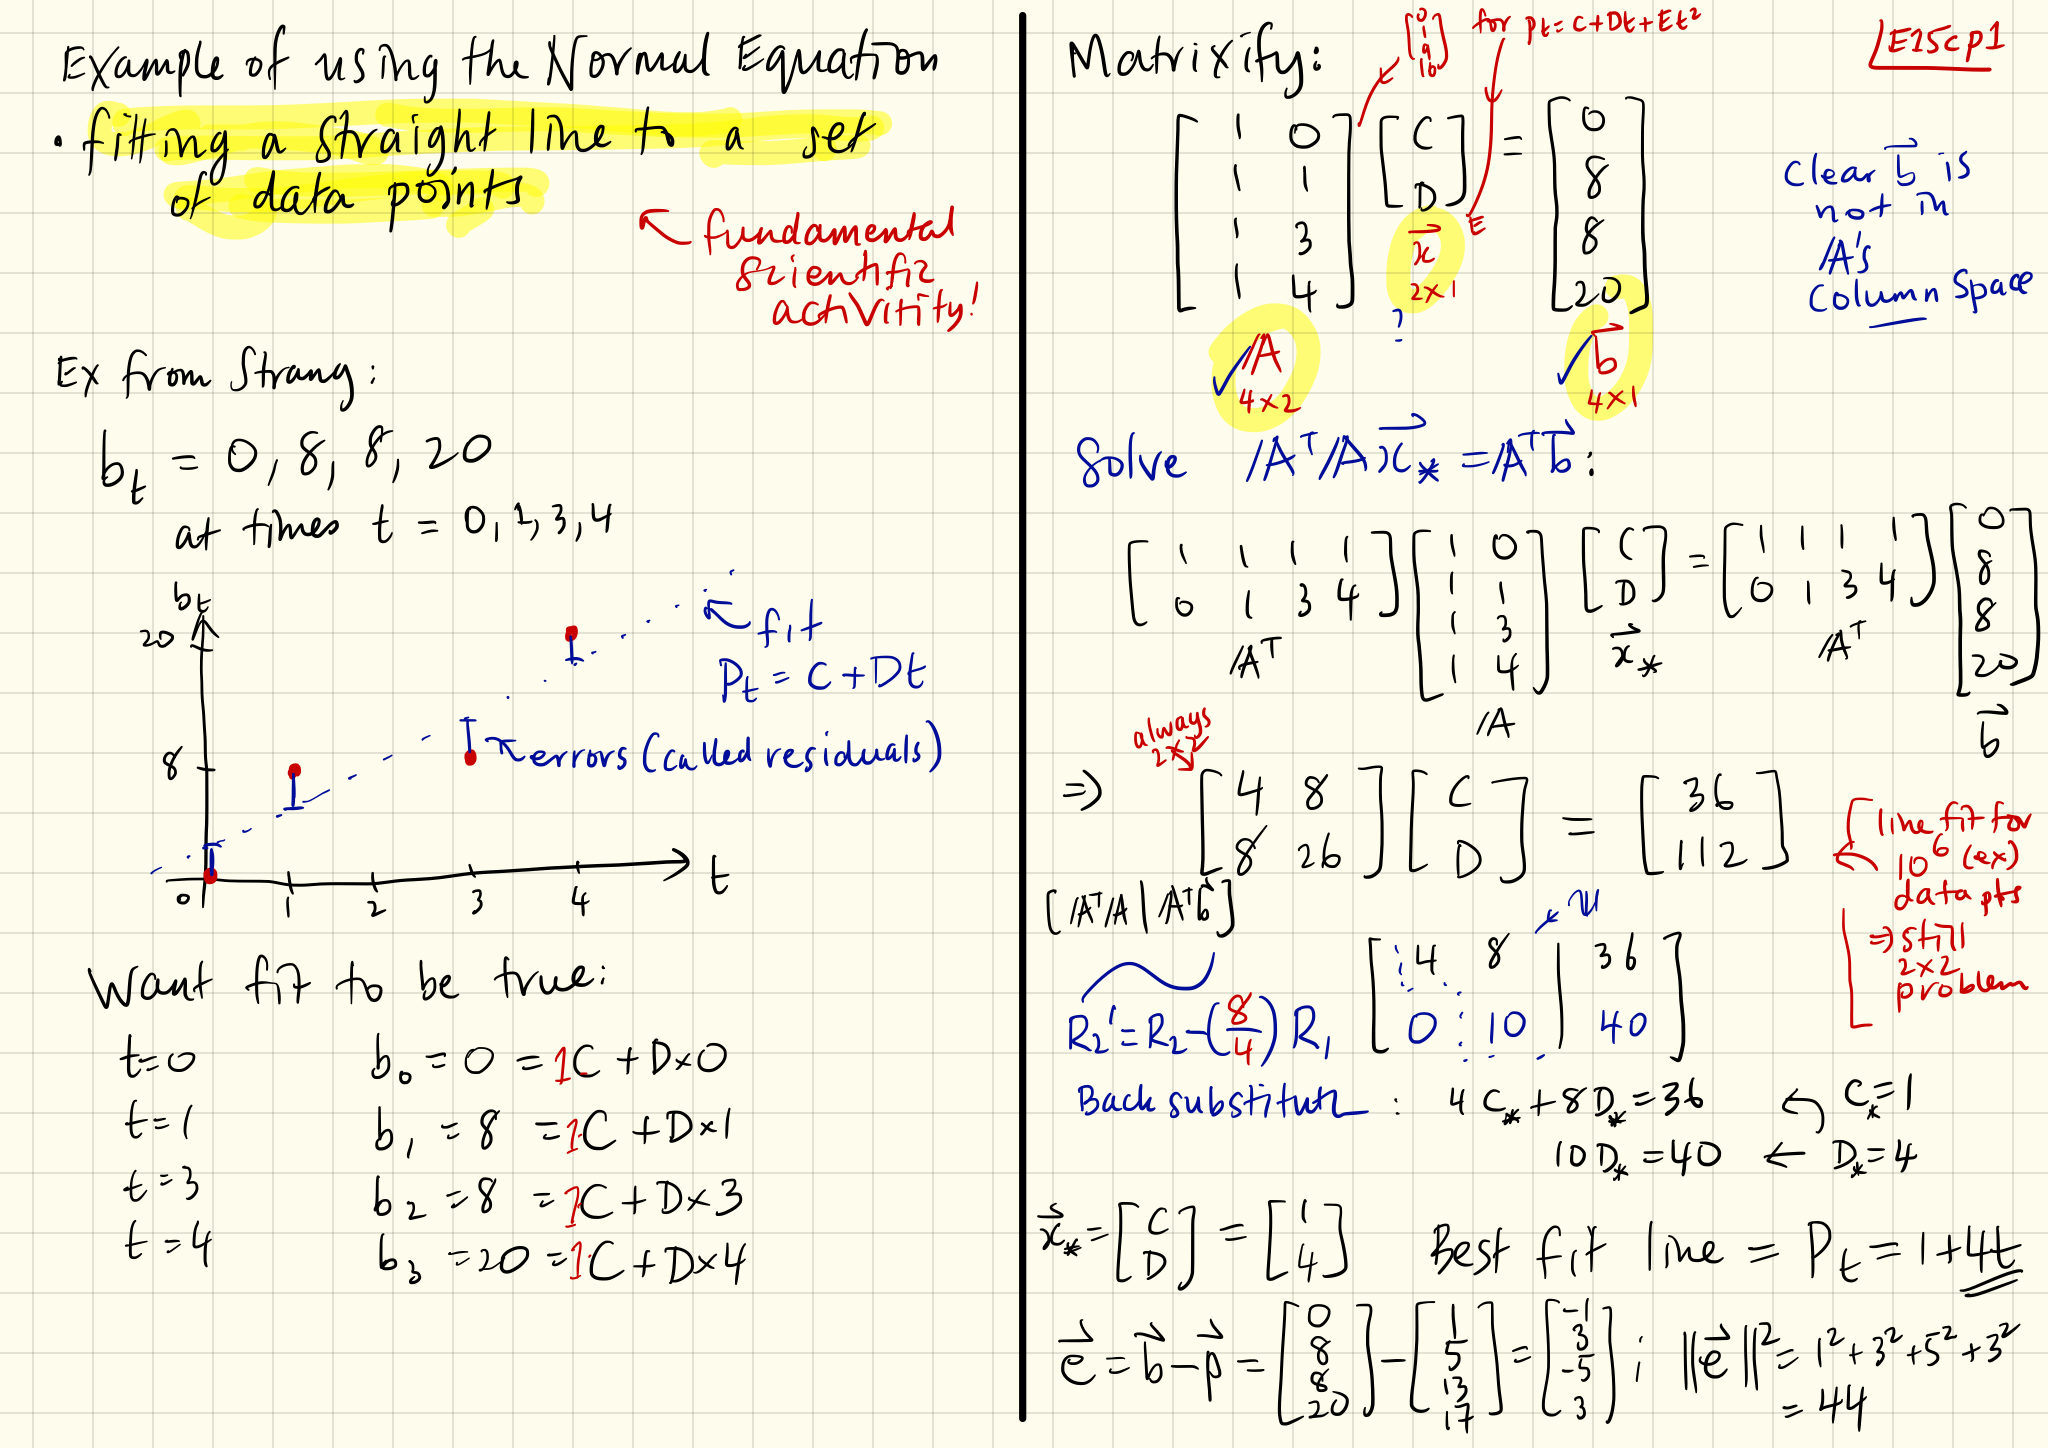 Example of using the Normal Equation
• fitting a straight line to a set
of data points
← fundamental
scientific
activitity!
Ex from Strang:
b_t = 0, 8, 8, 20
at times t = 0, 1, 3, 4
b_t
20
8
0 1 2 3 4 t
← fit
P_t = C + Dt
← errors (called residuals)
Want fit to be true:
t=0 b_0 = 0 = 1C + D×0
t=1 b_1 = 8 = 1·C + D×1
t=3 b_2 = 8 = 1C + D×3
t=4 b_3 = 20 = 1·C + D×4
E15cp1
Matrixify:
[0 1 9 16] for p_t = C+Dt+Et²
[1 0; 1 1; 1 3; 1 4] [C; D] = [0; 8; 8; 20]
E
A 4×2
x⃗ 2×1
?
b⃗ 4×1
Clear b⃗ is
not in
A's
Column Space
Solve AᵀA x⃗_* = Aᵀb⃗:
[1 1 1 1; 0 1 3 4] [1 0; 1 1; 1 3; 1 4] [C; D] = [1 1 1 1; 0 1 3 4] [0; 8; 8; 20]
Aᵀ A x⃗_* Aᵀ b⃗
always
2×2
⇒ [4 8; 8 26] [C; D] = [36; 112]
line fit for
10⁶ (ex)
data pts
⇒ still
2×2
problem
[AᵀA | Aᵀb⃗]
U
R_2' = R_2 - (8/4) R_1 [4 8 | 36; 0 10 | 40]
Back substitute: 4C_* + 8D_* = 36 C_* = 1
10D_* = 40 ← D_* = 4
x⃗_* = [C; D] = [1; 4] Best fit line = P_t = 1+4t
e⃗ = b⃗ - p⃗ = [0; 8; 8; 20] - [1; 5; 13; 17] = [-1; 3; -5; 3]; ||e⃗||² = 1² + 3² + 5² + 3²
= 44